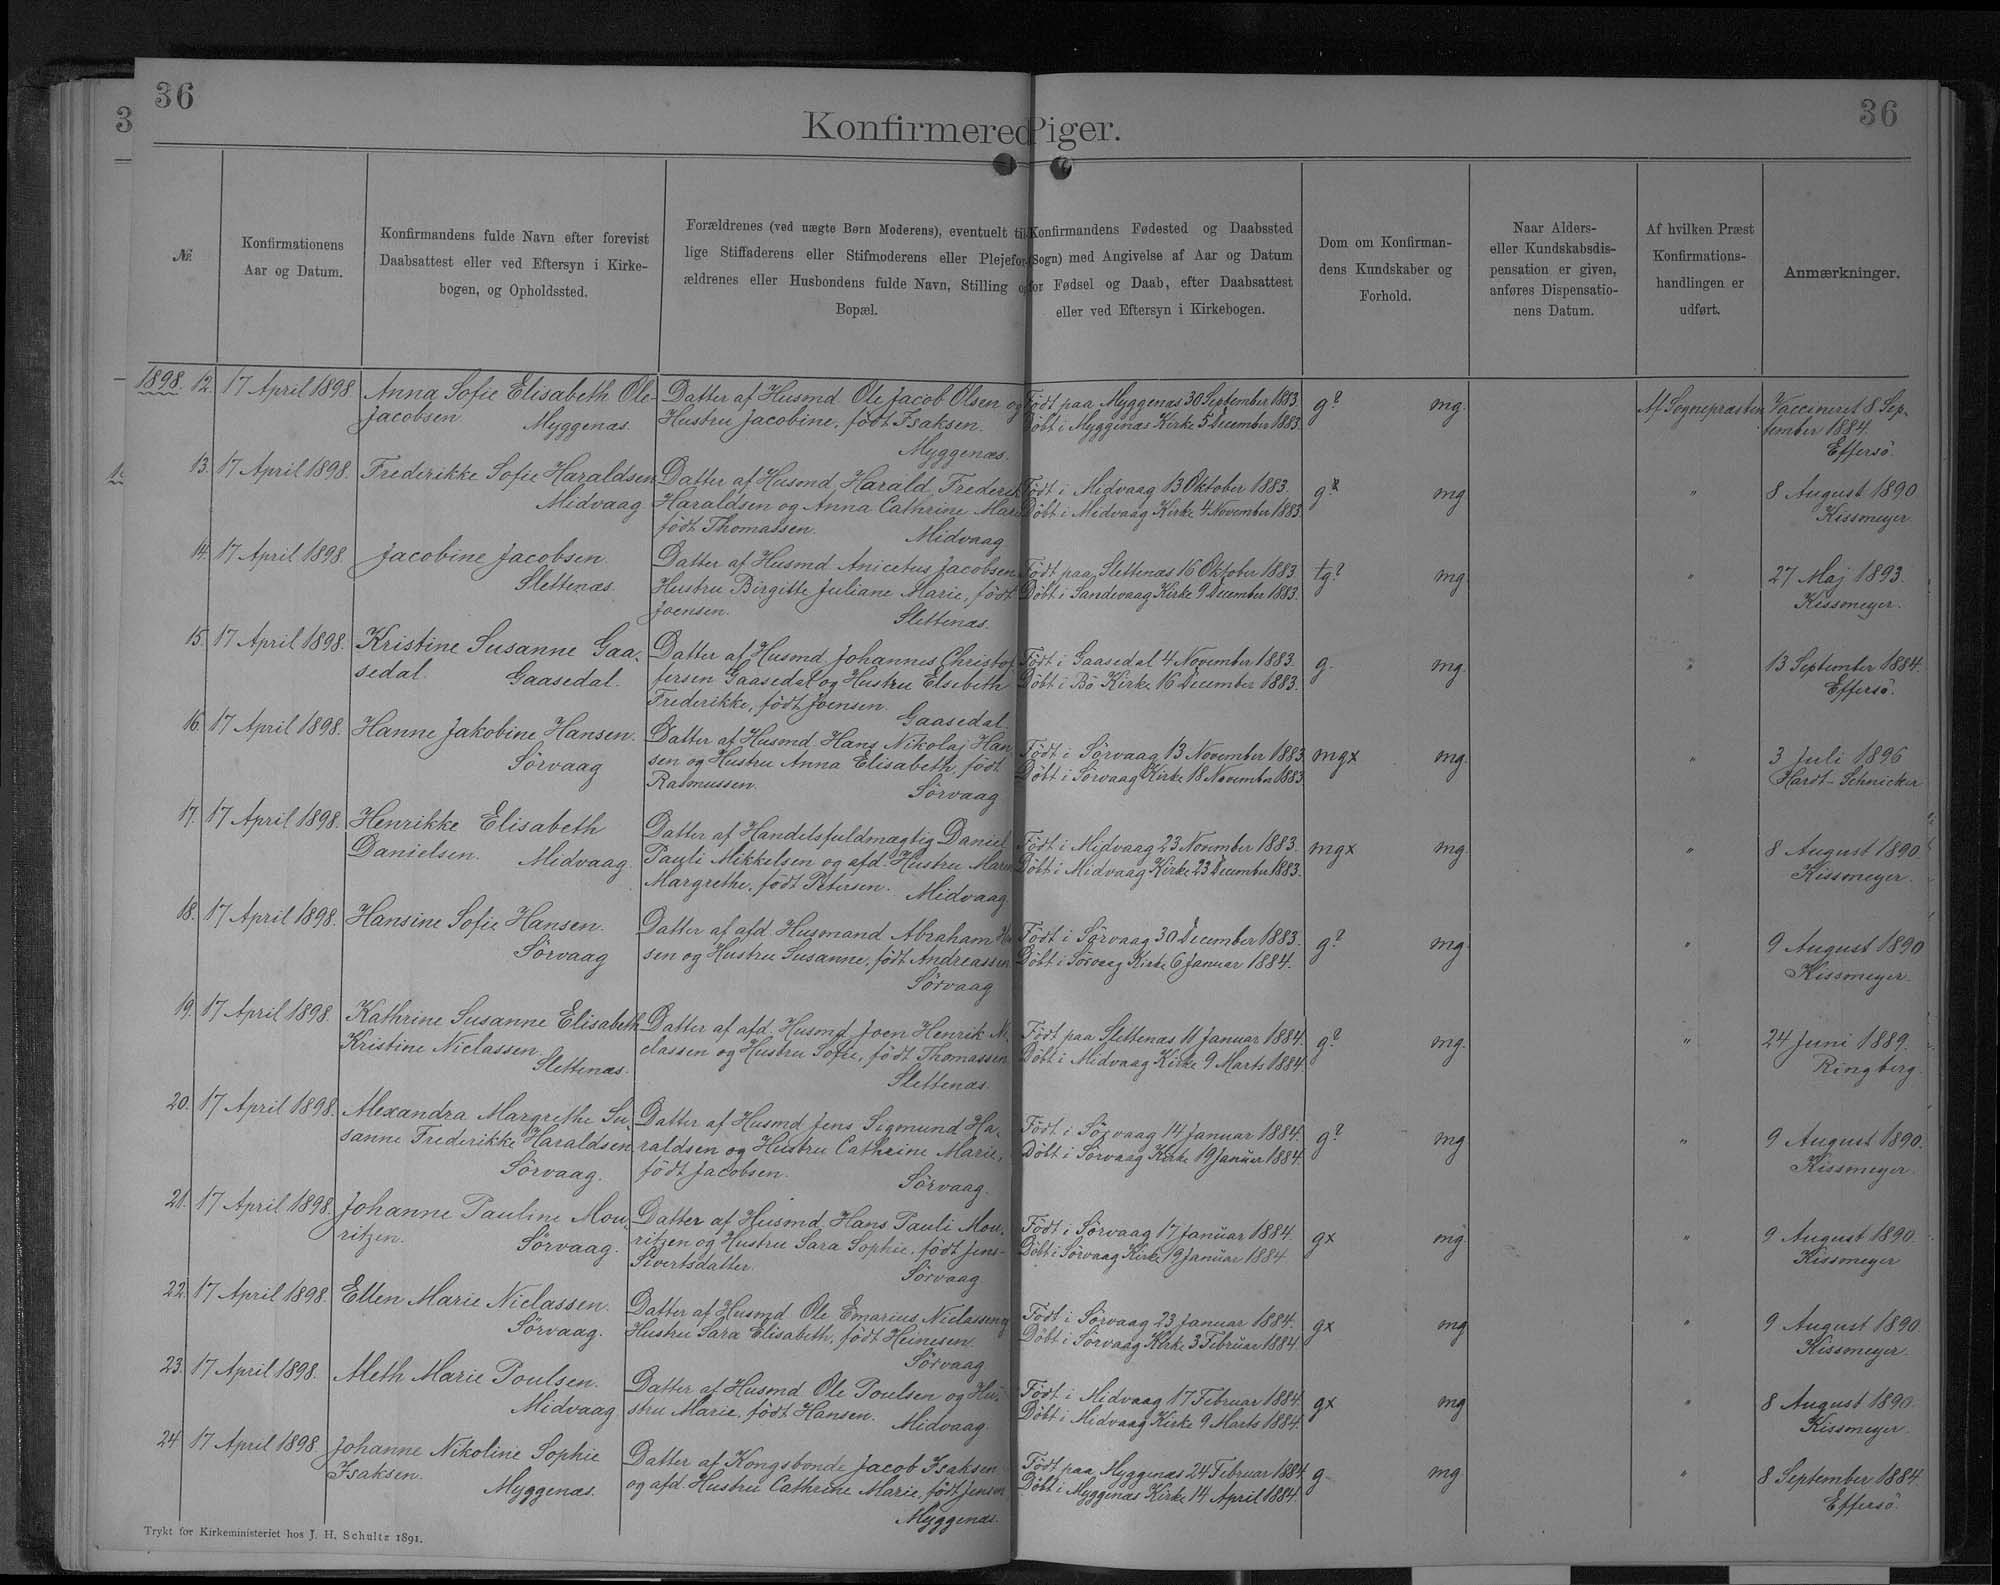 36
36
3
Konfirmered Piger.
№
Konfirmationens
Aar og Datum.
Konfirmandens fulde Navn efter forevist
Daabsattest eller ved Eftersyn i Kirke-
bogen, og Opholdssted.
Forældrenes (ved uægte Børn Moderens), eventuelt til-
lige Stiffaderens eller Stifmoderens eller Plejefor-
ældrenes eller Husbondens fulde Navn, Stilling og
Bopæl.
Konfirmandens Fødested og Daabssted
(Sogn) med Angivelse af Aar og Datum
for Fødsel og Daab, efter Daabsattest
eller ved Eftersyn i Kirkebogen.
Dom om Konfirman-
dens Kundskaber og
Forhold.
Naar Alders-
eller Kundskabsdis-
pensation er given,
anføres Dispensatio-
nens Datum.
Af hvilken Præst
Konfirmations-
handlingen er
udført.
Anmærkninger.
1898. 12. 17 April 1898
Anna Sofie Elisabeth Ole-
Jacobsen.
Myggenæs.
Datter af Husmd. Ole Jacob Olsen og
Hustru Jacobine, født Isaksen.
Myggenæs.
Født paa Myggenæs 30 September 1883.
Döbt i Myggenæs Kirke 5 December 1883.
g?
mg.
Af Sognepræsten
Vaccineret 8 Sep-
tember 1884.
Effersö.
13. 17 April 1898.
Frederikke Sofie Haraldsen
Midvaag
Datter af Husmd. Harald Frederik
Haraldsen og Anna Cathrine Marie
født Thomassen.
Midvaag
Födt i Midvaag 13 Oktober 1883.
Döbt i Midvaag Kirke 4 November 1883.
g
mg
"
8 August 1890
Kissmeyer
14. 17 April 1898.
Jacobine Jacobsen.
Slettenæs.
Datter af Husmd. Anicetus Jacobsen
Hustru Birgitte Juliane Marie, født
Joensen.
Slettenæs.
Födt paa Slettenæs 16 Oktober 1883.
Döbt i Sandevaag Kirke 9 December 1883.
tg?
mg.
"
27 Maj 1893.
Kissmeyer.
15. 17 April 1898.
Kristine Susanne Gaa-
sedal.
Gaasedal.
Datter af Husmd. Johannes Christof
fersen Gaasedal og Hustru Elsebeth
Frederikke, født Joensen.
Gaasedal.
Födt i Gaasedal 4 November 1883.
Döbt i Bö Kirke 16 December 1883.
g.
mg.
"
13 September 1884.
Effersö.
16. 17 April 1898.
Hanne Jakobine Hansen.
Sörvaag
Datter af Husmd. Hans Nikolaj Han
sen og Hustru Anna Elisabeth, født
Rasmussen.
Sörvaag
Födt i Sörvaag 13 November 1883.
Döbt i Sörvaag Kirke 18 November 1883
mgx
mg.
"
3 Juli 1896
Hardt-Schnicker
17. 17 April 1898.
Henrikke Elisabeth
Danielsen.
Midvaag.
Datter af Handelsfuldmægtig Daniel
Pauli Mikkelsen og afd. Hustru Maren
Margrethe, født Petersen.
Midvaag
Födt i Midvaag 23 November 1883.
Döbt i Midvaag Kirke 23 December 1883.
mgx
mg.
"
8 August 1890.
Kissmeyer.
18. 17 April 1898.
Hansine Sofie Hansen.
Sörvaag
Datter af afd. Husmand Abraham Han
sen og Hustru Susanne, født Andreassen
Sörvaag
Födt i Sörvaag 30 December 1883.
Döbt i Sörvaag Kirke 6 Januar 1884.
g?
mg.
"
9 August 1890
Kissmeyer.
19. 17 April 1898.
Kathrine Susanne Elisabeth
Kristine Niclassen.
Slettenæs.
Datter af afd. Husmd. Joen Henrik Ni
classen og Hustru Sofie, født Thomassen
Slettenæs.
Födt paa Slettenæs 11 Januar 1884.
Döbt i Midvaag Kirke 9 Marts 1884
g?
mg.
"
24 Juni 1889.
Ringberg.
20. 17 April 1898.
Alexandra Margrethe Su-
sanne Frederikke Haraldsen
Sörvaag.
Datter af Husmd. Jens Sigmund Ha-
raldsen og Hustru Cathrine Marie,
født Jacobsen.
Sörvaag.
Födt i Sörvaag 14 Januar 1884.
Döbt i Sörvaag Kirke 19 Januar 1884
g?
mg
"
9 August 1890.
Kissmeyer.
21. 17 April 1898.
Johanne Pauline Mou-
ritzen.
Sörvaag.
Datter af Husmd. Hans Pauli Mou-
ritzen og Hustru Sara Sophie, født Jens-
Sivertsdatter.
Sörvaag
Födt i Sörvaag 17 Januar 1884.
Döbt i Sörvaag Kirke 19 Januar 1884
gx
mg
"
9 August 1890.
Kissmeyer
22. 17 April 1898.
Ellen Marie Niclassen.
Sörvaag.
Datter af Husmd. Ole Emarius Niclassen og
Hustru Sara Elisabeth, født Heinesen.
Sörvaag
Födt i Sörvaag 23 Januar 1884.
Döbt i Sörvaag Kirke 3 Februar 1884.
gx
mg
"
9 August 1890
Kissmeyer.
23. 17 April 1898.
Meth Marie Poulsen.
Midvaag.
Datter af Husmd. Ole Poulsen og Hu-
stru Marie, født Hansen.
Midvaag.
Födt i Midvaag 17 Februar 1884.
Döbt i Midvaag Kirke 9 Marts 1884.
gx
mg
"
8 August 1890.
Kissmeyer.
24 17 April 1898.
Johanne Nikoline Sophie
Isaksen.
Myggenæs.
Datter af Kongsbonde Jacob Isaksen
og afd. Hustru Cathrine Marie, født Jensen
Myggenæs.
Födt paa Myggenæs 24 Februar 1884
Döbt i Myggenæs Kirke 14 April 1884.
g
mg
"
8 September 1884.
Effersö.
Trykt for Kirkeministeriet hos J. H. Schultz 1891.